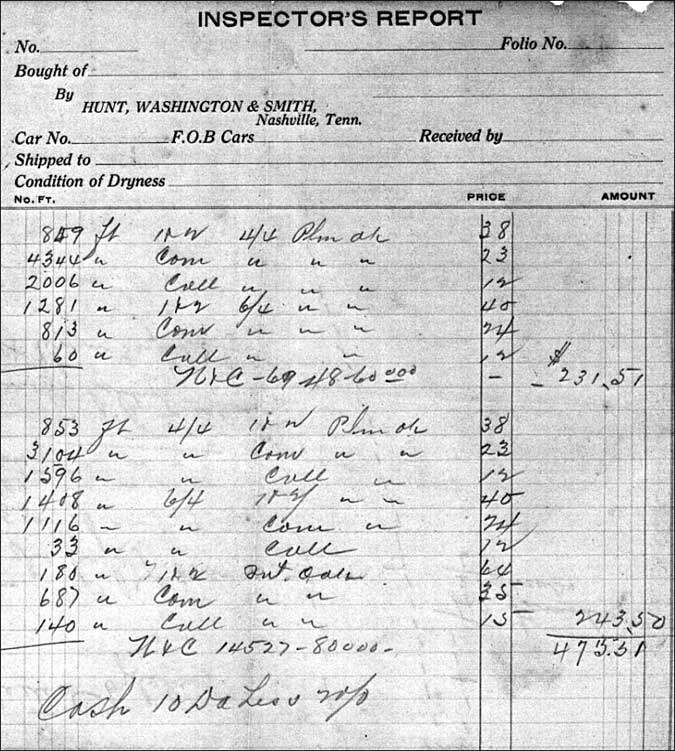 INSPECTOR'S REPORT
No. Folio No.
Bought of
By
HUNT, WASHINGTON & SMITH,
Nashville, Tenn.
Car No. F.O.B Cars Received by
Shipped to
Condition of Dryness
No. FT. PRICE AMOUNT
859 ft 1&2 4/4 Pln ok 38
4344 " Com " " " 23
2006 " Cull " " " 12
1281 " 1&2 6/4 " " 40
813 " Com " " " 24
60 " Cull " " 12
N&C - - $ 231.51
853 ft 4/4 1&2 Pln ok 38
3104 " " Com " " 23
1596 " " Cull " 12
1408 " 6/4 1&2 " " 40
1116 " " Com " 24
33 " " Cull 12
180 " 1&2 Oak 64
687 " Com " " 35
140 " Cull " " 15 243.50
N&C 14527-80000-
Cash 10 Da Less 2%